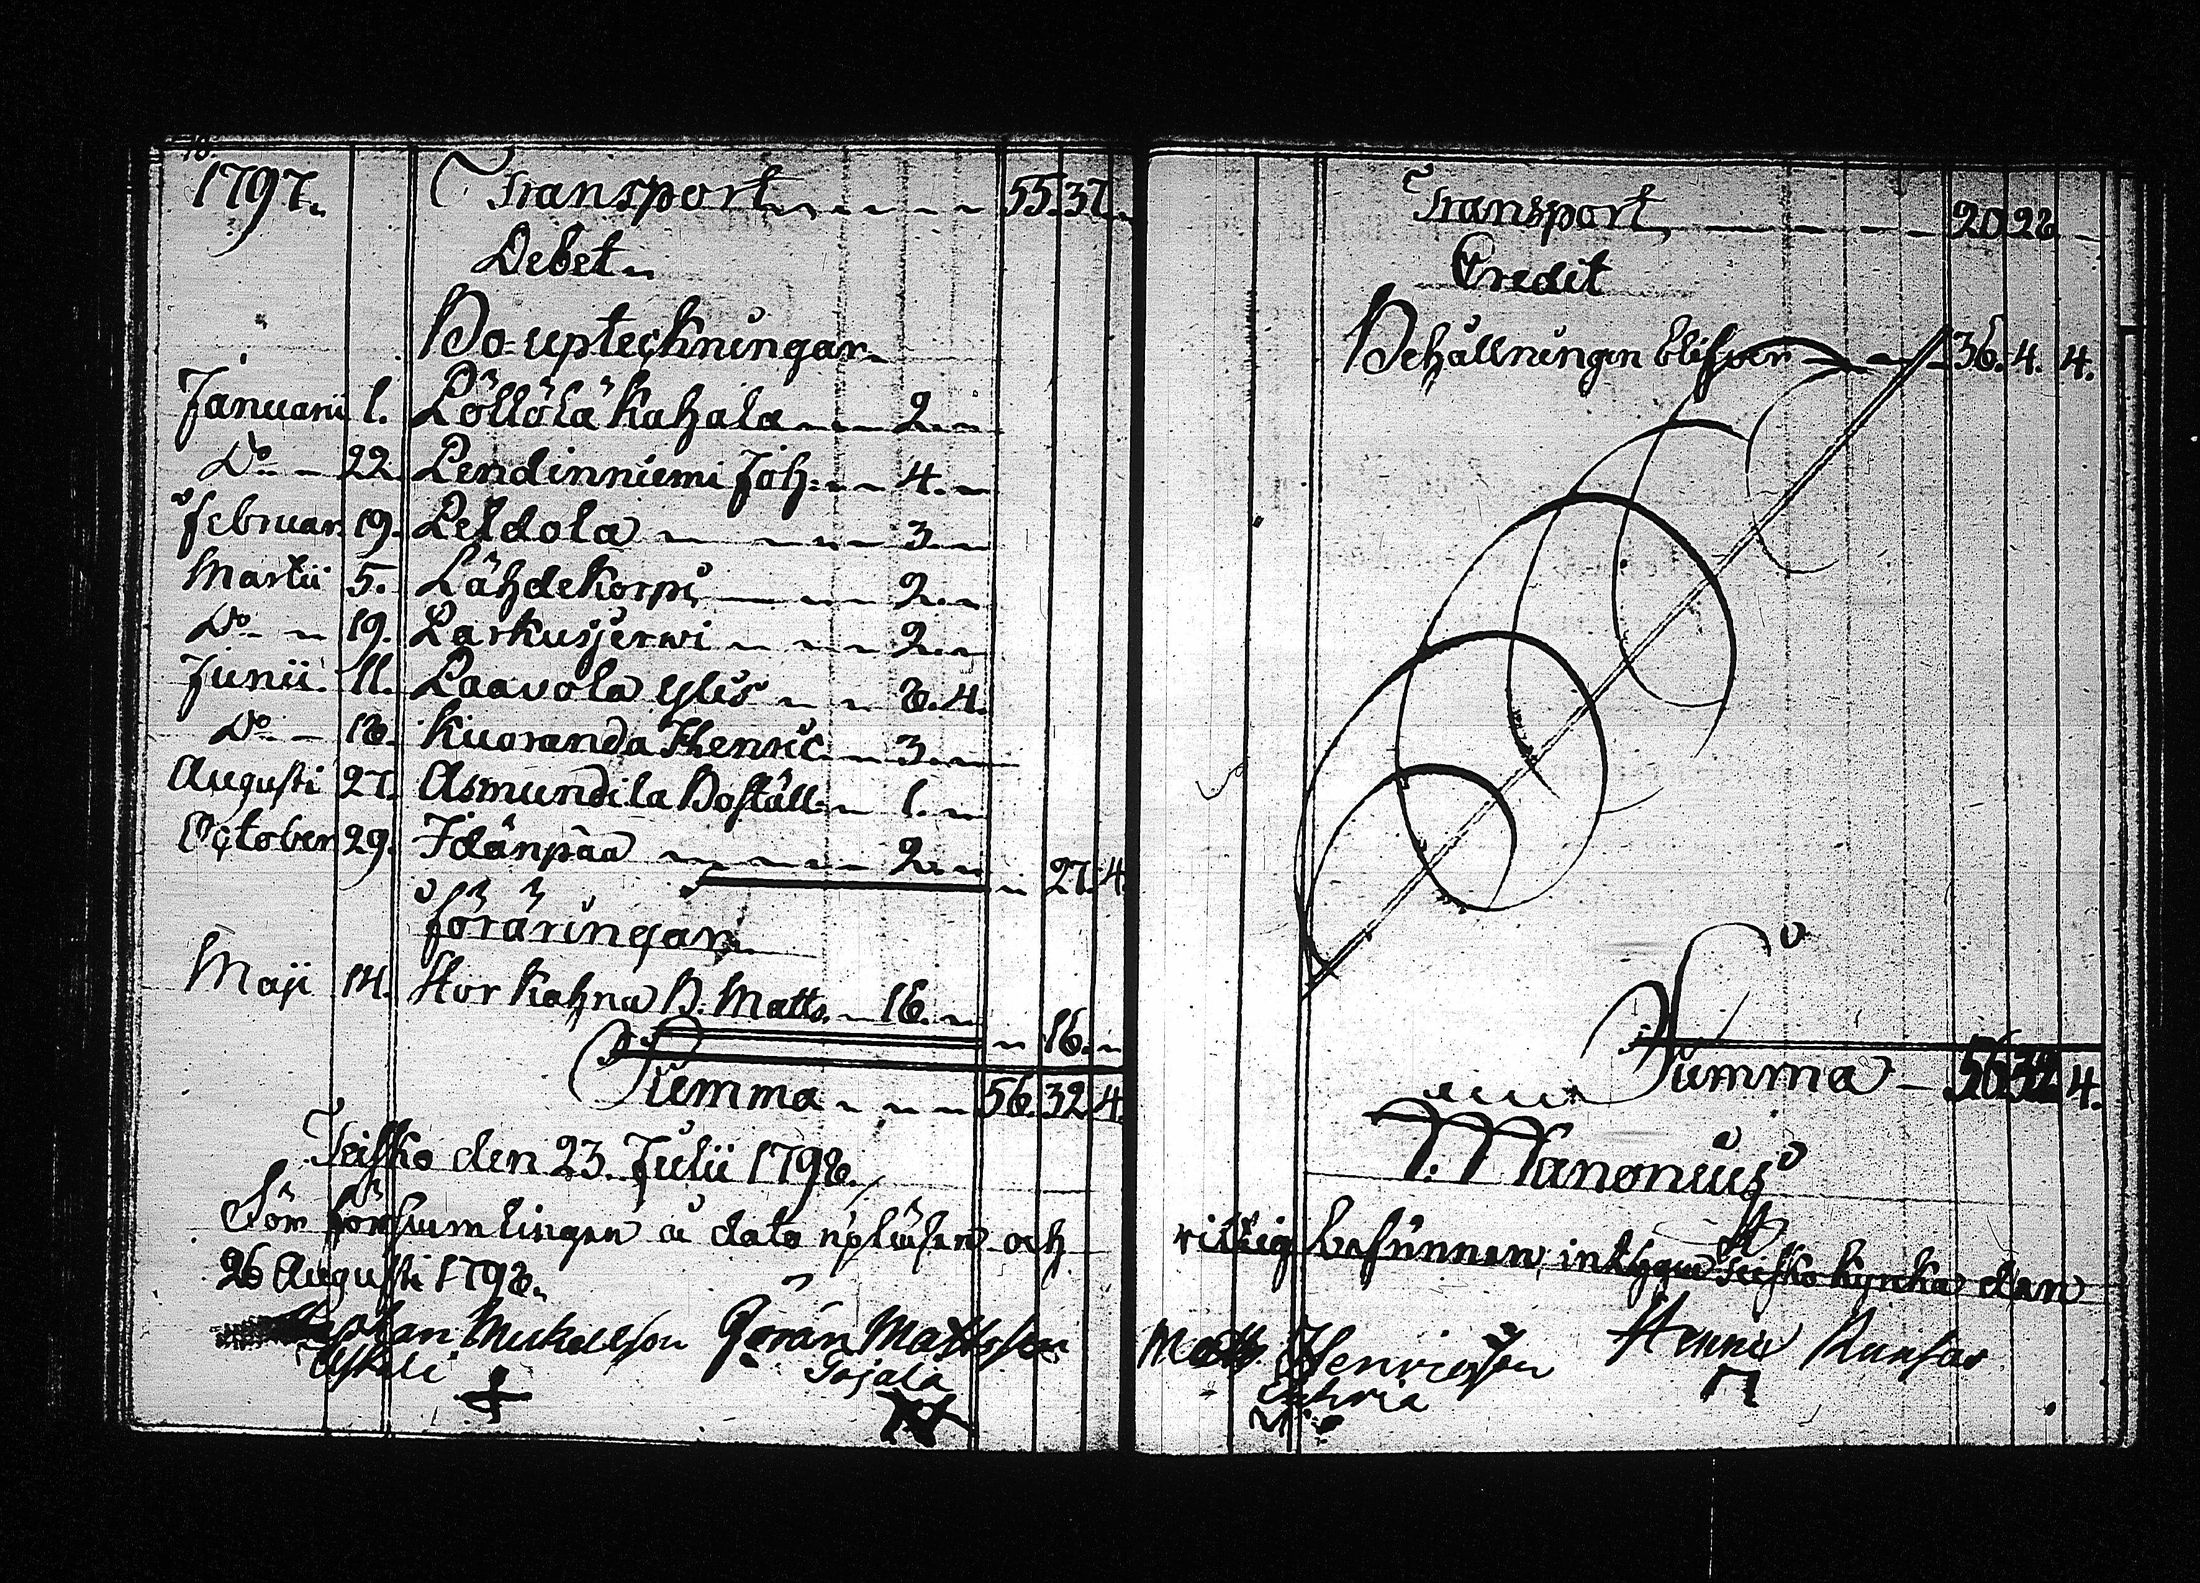 10.
1797. Transport 55. 37.
Debet
Bo-upteckningar
Januarii 1. Löllölä Kahala 2.
Do 22. Lendinniemi Joh: 4.
Februar. 19. Leldola 3.
Martii 5. Lähdekorpi 2.
Do 19. Larkusjerwi 2.
Junii 11. Laavola ylis 8. 4.
Do 18. Kuoranda Henric 3.
Augusti 27. Asmundila Boställ 1.
October 29. Idänpää 2. 27. 4.
föräringar
Maji 14. Stor Kahna B. Matts. 16.
16.
Summa 56. 32 4
Teisko den 23. Julii 1798.
Som församlingen à dato upläsen och
26 Augusti 1798.
Mickellson Göran Mattsson
Transport 20 28
Credit
Behållningen blifver 36. 4. 4.
Summa 56 32 4.
T. Manonius
riktig befunnen, intygar Teisko kyrka den
Matts Henricsson Henric